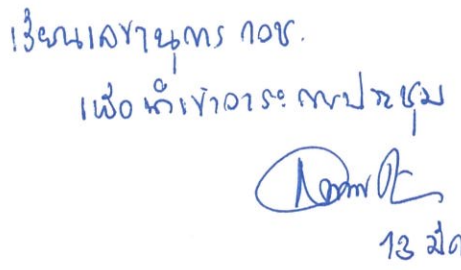 เรียนเลขานุการ กอช.
เพื่อนำเข้าวาระการประชุม
13 มีค